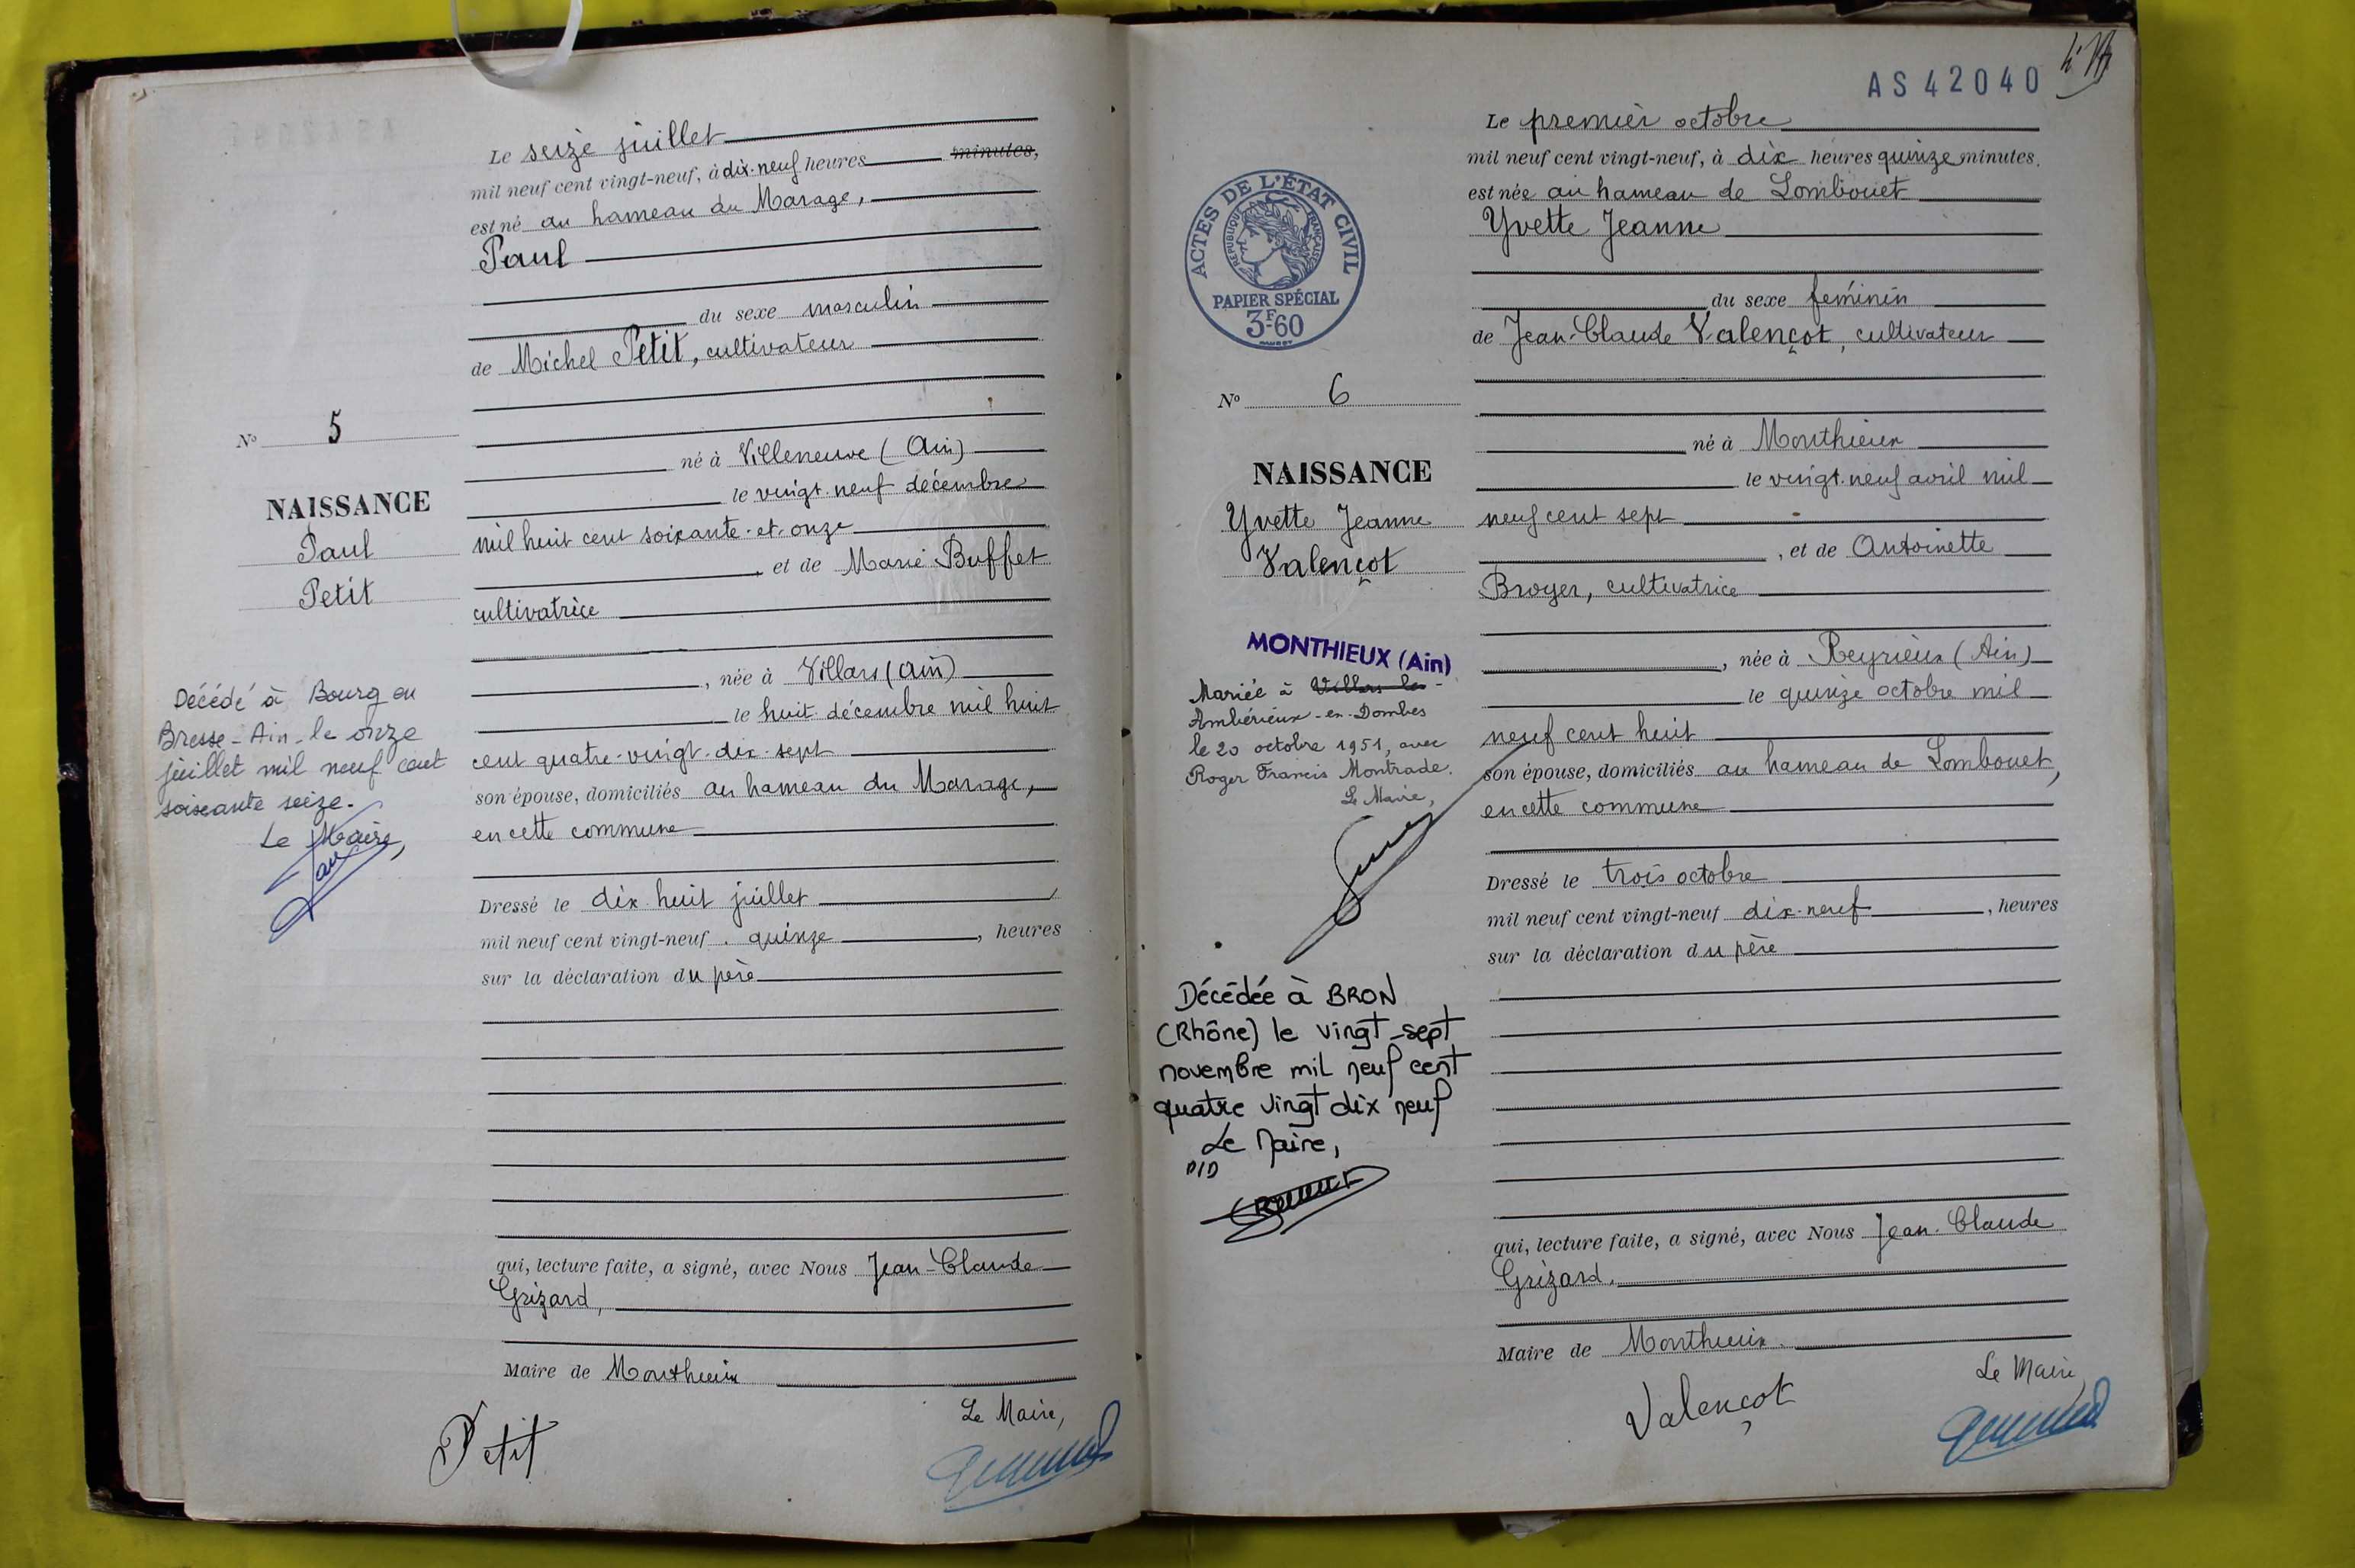 Le seize juillet
mil neuf cent vingt-neuf, à dix-neuf heures minutes,
est né au hameau du Marage,
Paul
du sexe masculin
de Michel Petit, cultivateur
né à Villeneuve (Ain)
le vingt-neuf décembre
mil huit cent soixante-et-onze
et de Marie Buffet
cultivatrice
, née à Villars (Ain)
le huit décembre mil huit
cent quatre-vingt-dix-sept
son épouse, domiciliés au hameau du Marage,
en cette commune
Dressé le dix-huit juillet
mil neuf cent vingt-neuf. quinze, heures
sur la déclaration du père
qui, lecture faite, a signé, avec Nous Jean-Claude
Grizard,
Maire de Monthieux
Le Maire,
Petit
N° 5
NAISSANCE
Paul
Petit
Décédé à Bourg en
Bresse - Ain - le onze
juillet mil neuf cent
soixante seize.
Le Maire,
AS 42040
ACTES DE L'ÉTAT CIVIL
RÉPUBLIQUE FRANÇAISE
PAPIER SPÉCIAL
3F-60
N° 6
NAISSANCE
Yvette Jeanne
Valençot
MONTHIEUX (Ain)
Mariée à Villars les -
Ambérieux-en-Dombes
le 20 octobre 1951, avec
Roger Francis Montrade.
Le Maire,
Décédée à BRON
(Rhône) le vingt-sept
novembre mil neuf cent
quatre vingt dix neuf
Le Maire,
P/D
Le premier octobre
mil neuf cent vingt-neuf, à dix heures quinze minutes.
est née au hameau de Lombouet
Yvette Jeanne
du sexe féminin
de Jean-Claude Valençot, cultivateur
né à Monthieux
le vingt-neuf avril mil
neuf cent sept
, et de Antoinette
Broyer, cultivatrice
, née à Reyrieux (Ain)
le quinze octobre mil
neuf cent huit
son épouse, domiciliés au hameau de Lombouet,
en cette commune
Dressé le trois octobre
mil neuf cent vingt-neuf dix-neuf, heures
sur la déclaration du père
qui, lecture faite, a signé, avec Nous Jean-Claude
Grizard.
Maire de Monthieux.
Le Maire,
Valençot